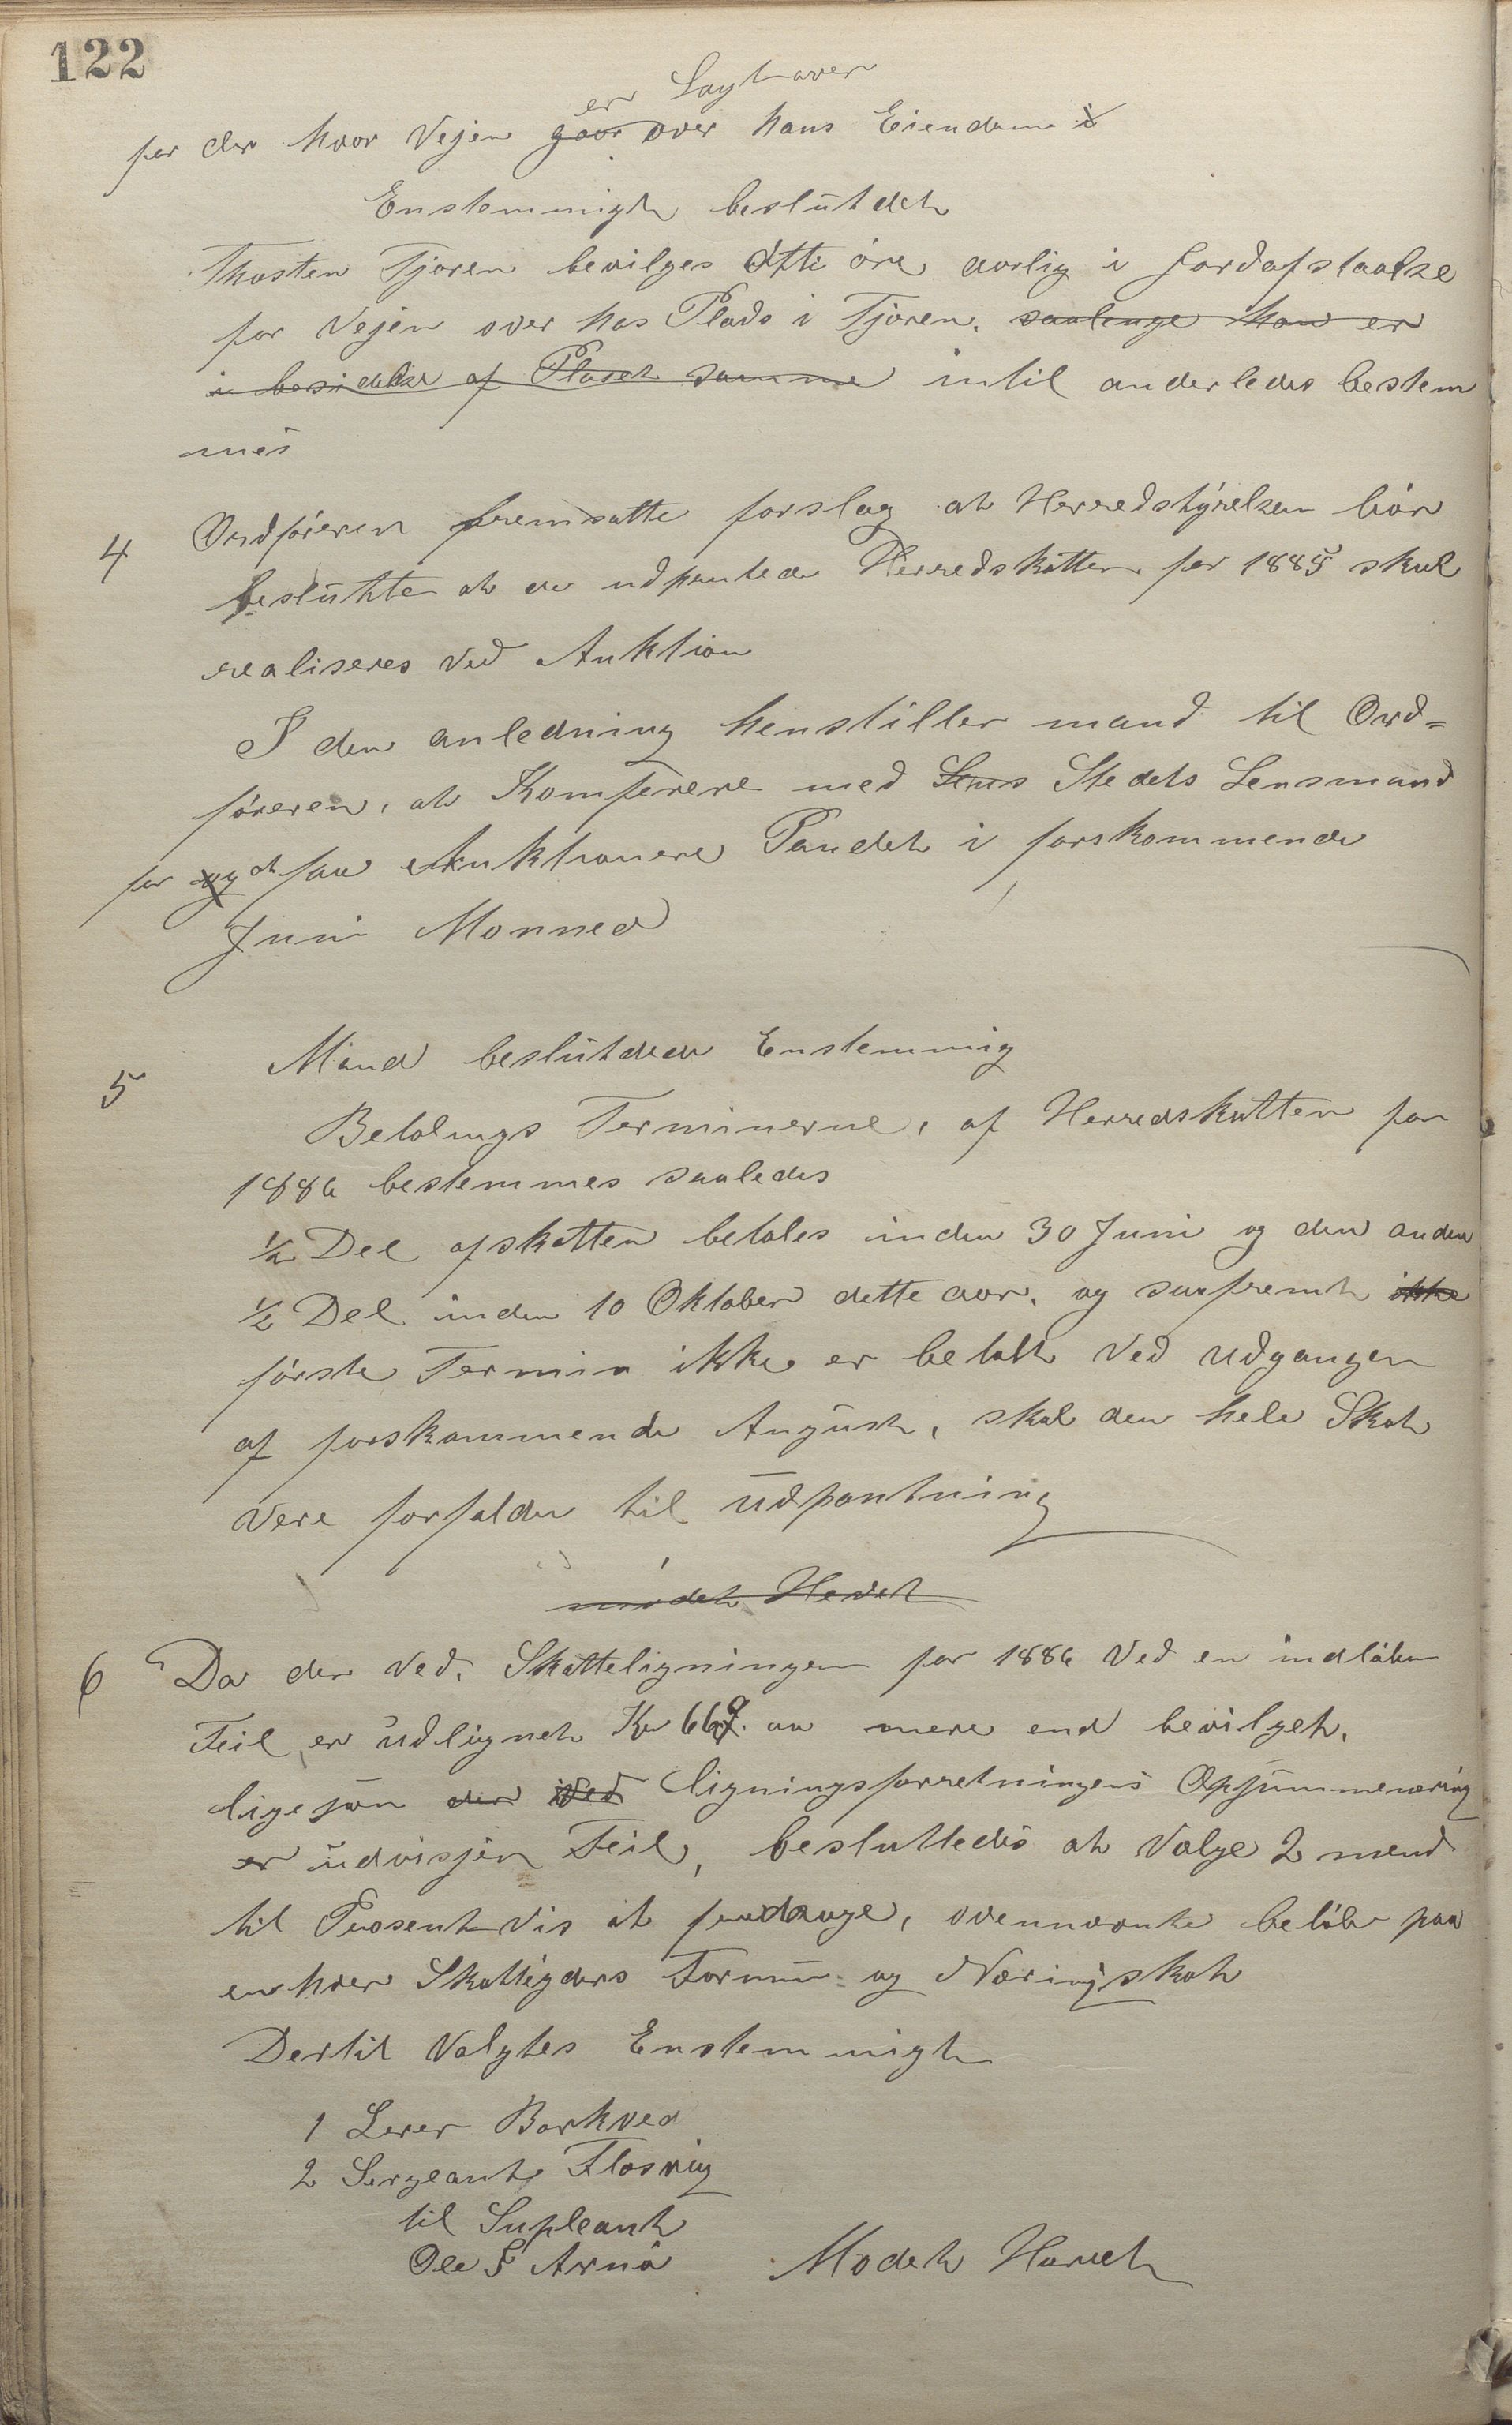 122
er Lagt over
for der hvor Vejen gaar over hans Eiendom i
Enstemmigt beslutdet
Thosten Tjoren bevilges Otti öre aarlig i Jordafstaalse
for Vejen over has Plads i Tjoren. saalenge han er
i besidelse af Pladset samme intil anderledes bestem
mes
4 Ordföreren fremsatte forslag at Herredstyrelsen bör
beslutte at de udpantede Herredskatter for 1885 skul
realiseres ved Auktion
I den anledning henstiller mand til Ord=
föreren, at Komferere med Lens Stedets Lensmand
for og at faa Auktionere Pandet i forskommende
Juni Monned
5 Mand beslutdede Enstemmig
Betalings Terminerne, af Herredskatten for
1886 bestemmes saaledes
1/2 Del af skatten betales inden 30 Juni og den anden
1/2 Del inden 10 Oktober dette aar. og saafremt ikke
förste Termin ikke er betalt Ved udgangen
af forskommende August, skal den hele Skat
Vere forfalden til udpantning
mödet Hevet
6 Da der Ved. Skatteligningen for 1886 Ved en indlöben
Feil er udlignet Kr 669. mere end bevilget.
ligesom der ved ligningsforretningens Opsummerering
er udvisjen Feil, besluttedes at Valge 2 mend
til Prosent Vis at fradrage, ovennevnte belöb paa
enhver Skatteyders Formu- og Næringskat
Dertil Valgtes Enstemmigt
1 Lerer Barkved
2 Sergeant Flosvig
til Supleant
Ole S Arnö Modet Hævet